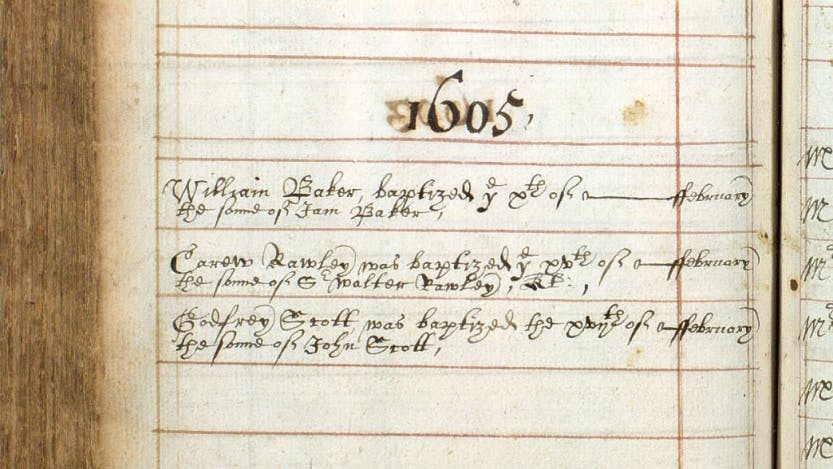 1605,
William Baker, baptized ye xth of ffebruary
the sonne of Jam Baker,
Carew Rawley was baptized ye xvth of ffebruary
the sonne of Sr Walter Rawley, Kt:,
Godfrey Scott, was baptized the xvijth of ffebruary
the sonne of John Scott,